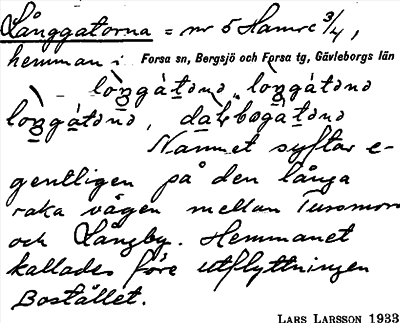 Långgatorna = nr 5 Hamre 3/4,
hemman i Forsa sn, Bergsjö och Forsa tg, Gävleborgs län
lòŋgátənə, lòŋgátənə
lòŋgátənə, dàl bogátənə
Namnet syftar e-
gentligen på den långa
raka vägen mellan Tursmon
och Långby. Hemmanet
kallades före utflyttningen
Bostället.
LARS LARSSON 1933